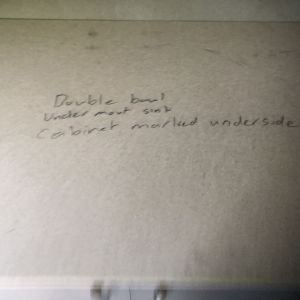 Double bowl
Undermout sink
Cabinet marked underside